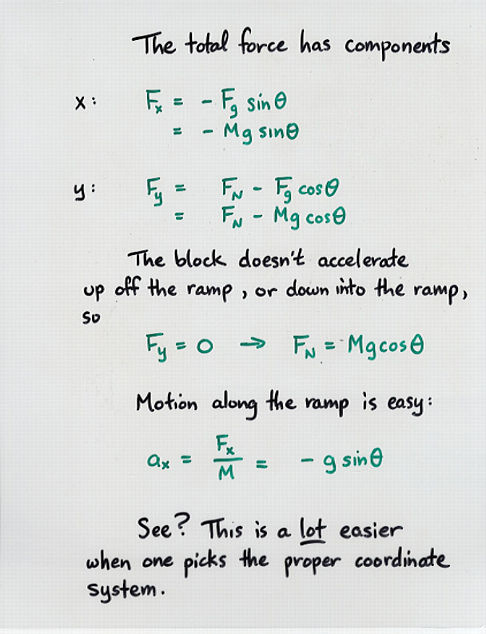 The total force has components
x: Fx = - Fg sinθ
= - Mg sinθ
y: Fy = FN - Fg cosθ
= FN - Mg cosθ
The block doesn't accelerate
up off the ramp, or down into the ramp,
so
Fy = 0 → FN = Mg cosθ
Motion along the ramp is easy:
ax = Fx/M = - g sinθ
See? This is a lot easier
when one picks the proper coordinate
system.